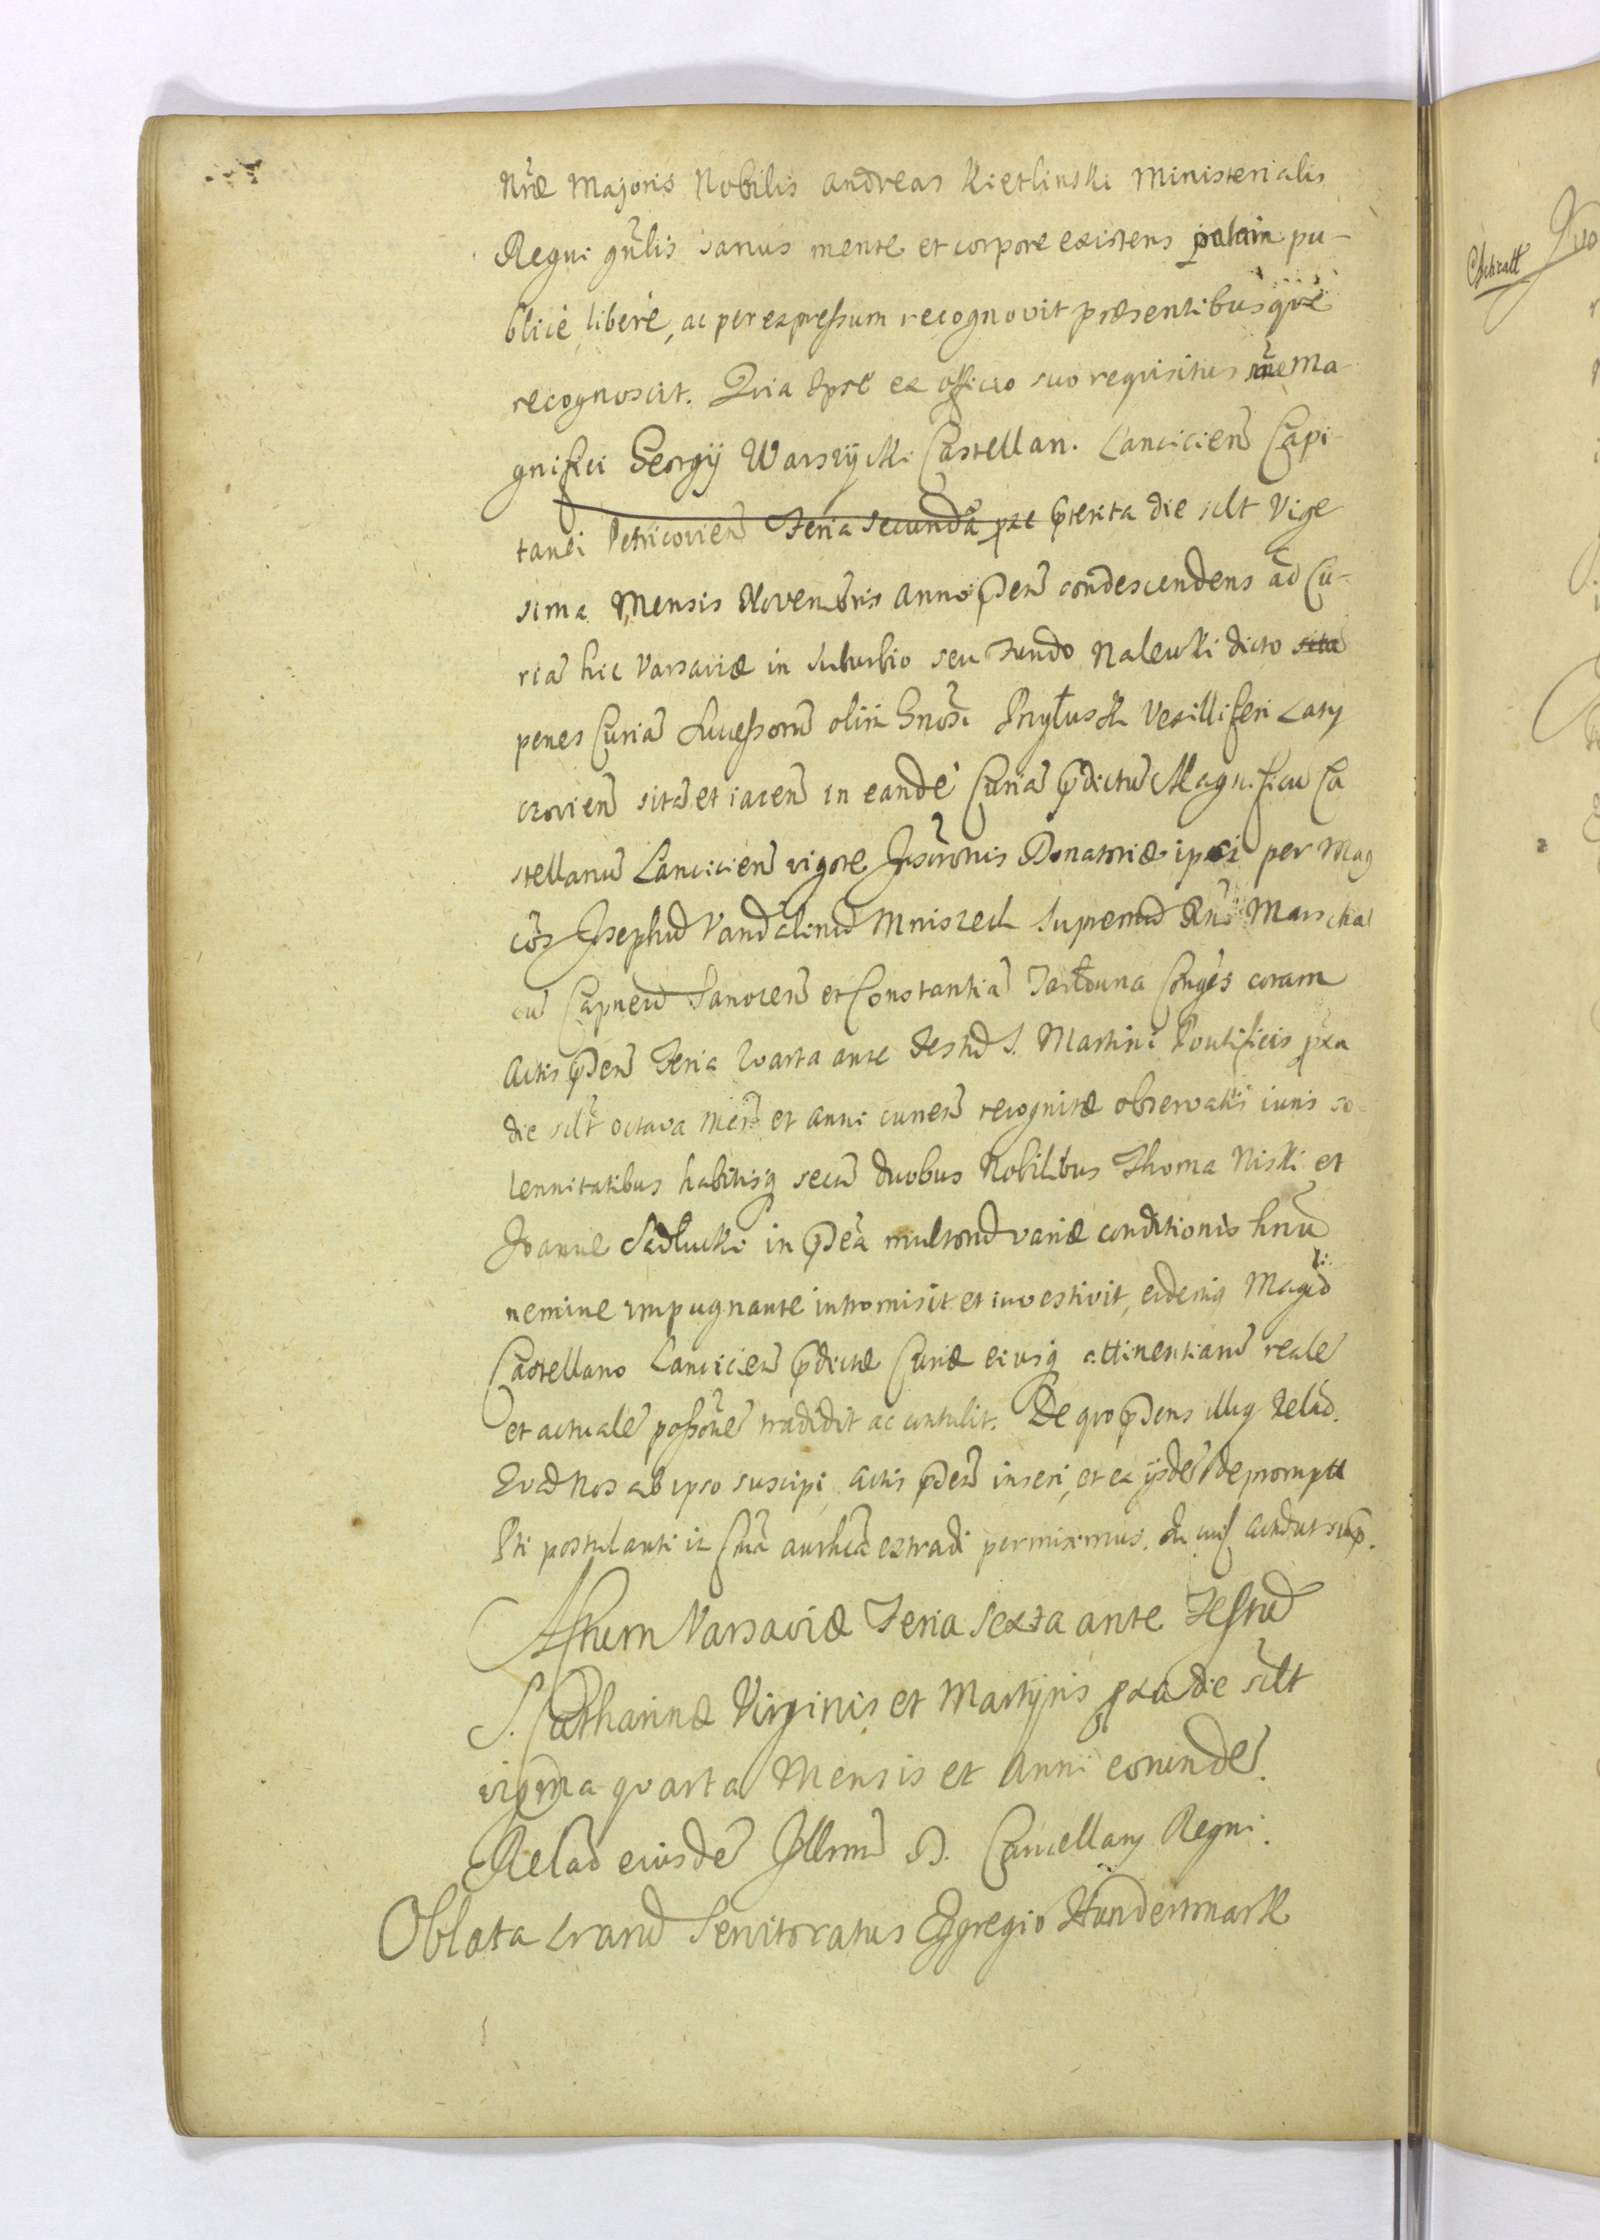 Nrae Majoris Nobilis Andreas Kietlinski Ministerialis
Regni gnlis sanus mente et corpore existens palam pu-
blice, libere, ac per expressum recognovit praesentibusque
recognoscit. Quia Ipse ex officio suo requisitus Ma
gnifici Georgÿ Warszÿcki Castellan. Lancicien Capi
tanei Petricovien Feria secunda prae pterita die silt Vige
sima Mensis Novembris anno pden condescendens ad Cu-
ria hic Varsaviae in suburbio seu Fundo Nalewki dicto sita
penes Curia Successoru olim Gnosi Prÿłuski Vexilliferi
crovien sita et iacen in eande Curia pdictu Magnificu Ca
stellanu Lancicien vigore Inscrionis Donatoriae ipsi per Mag
cos Josephu Vandalinu Mniszech Supremu Rni Marschal
cu Capneu Sanocen et Constantia Tarłowna Conges coram
Actis pden Feria Quarta ante Festu S. Martini Pontificis pxa
die silt octava Men et anni curren recognitae observatis iuris so
lennitatibus habitisq secu duobus Nobilibus Thoma Niski et
Joanne Sadlucki in pdea multoru variae conditionis hnu
nemine impugnante intromisit et investivit, eidemq Mageo
Castellano Lancicien pdictae Curiae eiusq attinentiaru reale
et actuale possone tradidit ac contulit. De quo pdens illius Relao.
Quod Nos ab ipso suscipi, actis pden inseri, et ex ijsde depromptu
Pti postulanti in fa authca extradi permisimus. In cuius Actu dat sup.
Actum Varsaviae Feria Sexta ante Festu
S. Catharinae Virginis et Martyris pxa die silt
vigma quarta Mensis et Anni eorunde.
Relao eiusde Illrmi D. Cancellarÿ Regni.
Oblata Lraru Servitoratus Egregio Hundertmark